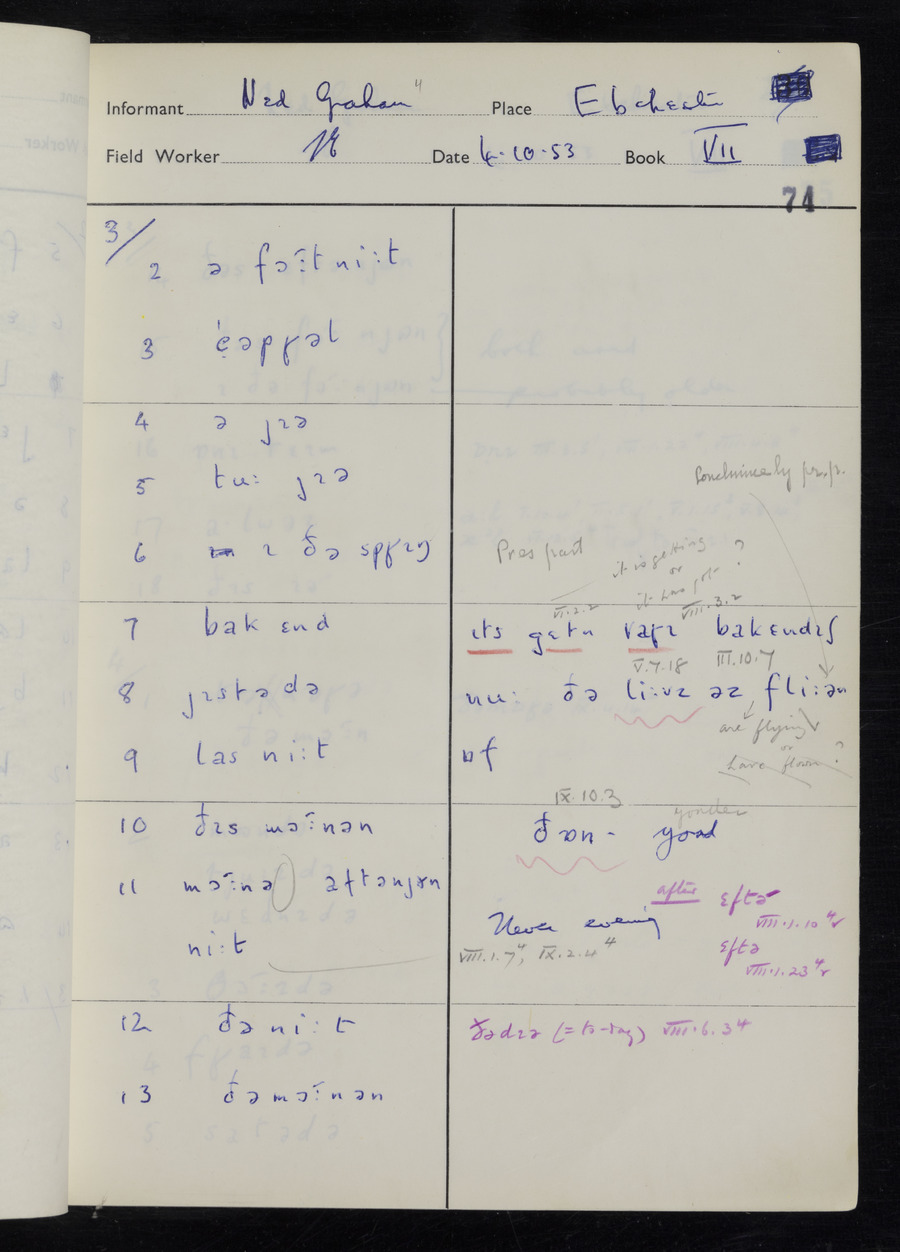 Informant Ned Graham 4 Place Ebchester
Field Worker Date 6·10·53 Book VII
74
3/
2 ə fɔːtniːt
3
4 ə jɪə
5 tuː jɪə
6 ɪ ðə spʁɪŋ
Pres part
it is getting
or
it has got ?
VI.2.2 VIII.3.2
7 bak ɛnd
ɪts gɛtn vaʁɪ bakɛndɪʃ
V.7.18 III.10.7
8 jɪstədə
nuː ðə liːvz əz fliːən
are flying
or
have flown ?
9 las niːt
ɒf
IX.10.3 yonder
10 ðɪs mɔːnən
ðɒn -
11 mɔːnə aftənjən
niːt
Never evening
VIII.1.7⁴, IX.2.4⁴
after ɛftə
VIII.1.10⁴
ɛftə
VIII.1.23⁴
12 ðə niːt
ðədɪə (= to-day) VIII.6.3⁴
13 ðəmɔːnən